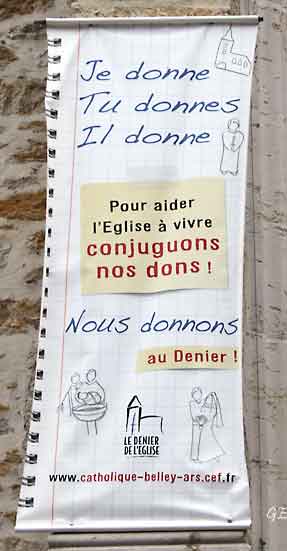 Je donne
Tu donnes
Il donne
Pour aider
l'Eglise à vivre
conjuguons
nos dons !
Nous donnons
au Denier !
LE DENIER
DE L'EGLISE
www.catholique-belley-ars.cef.fr
GE